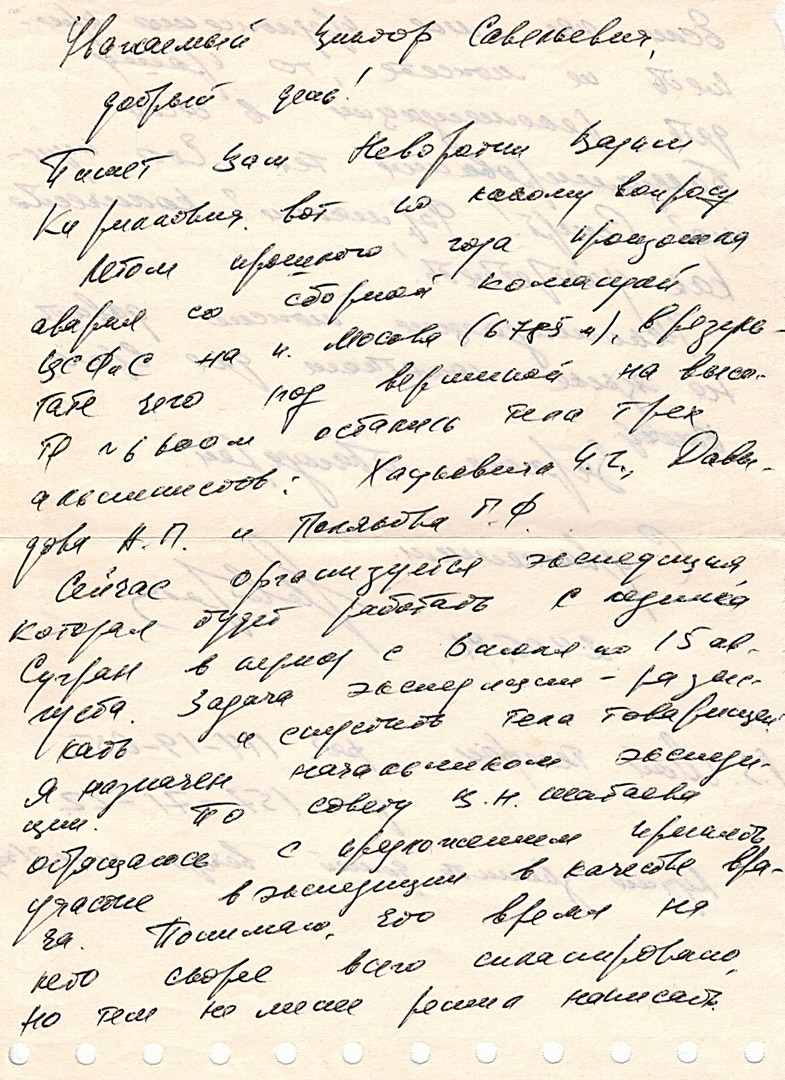 Уважаемый Виктор Савельевич,
добрый день!
Пишет Вам Неворотин Вадим
Кириллович. вот по какому вопросу
Летом прошлого года произошла
авария со сборной командой
ЦСФиС на п. Москва (6785 м), в резуль-
тате чего под вершиной на высо-
те ~6600м остались тела трех
альпинистов: Хацкевича Ч.Ч., Давы-
дова Н.П. и Полякова Г.Ф.
Сейчас организуется экспедиция,
которая будет работать с ледника
Сугран в период с 6 июля по 15 ав-
густа. Задача экспедиции - разыс-
кать и спустить тела товарищей.
Я назначен начальником экспеди-
ции. По совету В.Н. Шатаева
обращаюсь с предложением принять
участие в экспедиции в качестве вра-
ча. Понимаю, что время на
лето скорее всего спланировано,
но тем не менее решил написать.